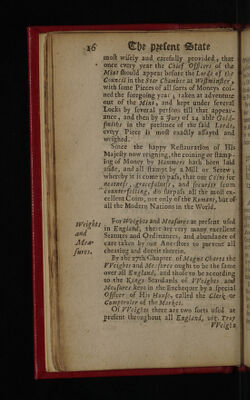 16 The present State
most wisely and carefully provided, that
once every year the Chief Officers of the
Mint should appear before the Lords of the
Council in the Star Chamber at Westminster,
with some Pieces of all sorts of Moneys coi-
ned the foregoing year, taken at adventure
out of the Mint, and kept under several
Locks by several persons till that appear-
ance, and then by a Jury of 24 able Gold-
smiths in the presence of the said Lords,
every Piece is most exactly assayed and
weighed.
Since the happy Restauration of His
Majesty now reigning, the coining or stamp-
ing of Money by Hammers hath been laid
aside, and all stampt by a Mill or Screw;
whereby it is come to pass, that our Coins for
neatness, gracefulness, and security from
counterfeiting, do surpass all the most ex-
cellent Coins, not only of the Romans, but of
all the Modern Nations in the World.
Weights
and
Mea-
sures.
For Weights and Measures at present used
in England, there are very many excellent
Statutes and Ordinances, and abundance of
care taken by our Ancestors to prevent all
cheating and deceit therein.
By the 27th Chapter of Magna Charta the
VVeights and Measures ought to be the same
over all England, and those to be according
to the Kings Standards of VVeights and
Measures kept in the Exchequer by a special
Officer of His House, called the Clerk or
Comptroler of the Market.
Of VVeights there are two sorts used at
present throughout all England, viz. Troy
VVeight